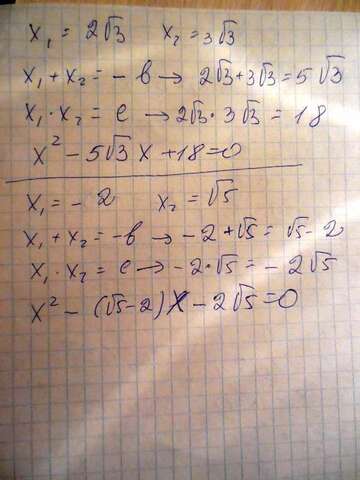 x₁ = 2√3 x₂ = 3√3
x₁ + x₂ = - в → 2√3 + 3√3 = 5√3
x₁ · x₂ = c → 2√3 · 3√3 = 18
x² - 5√3 x + 18 = 0
x₁ = - 2 x₂ = √5
x₁ + x₂ = -в → - 2 + √5 = √5 - 2
x₁ · x₂ = c → - 2 · √5 = - 2√5
x² - (√5 - 2) x - 2√5 = 0